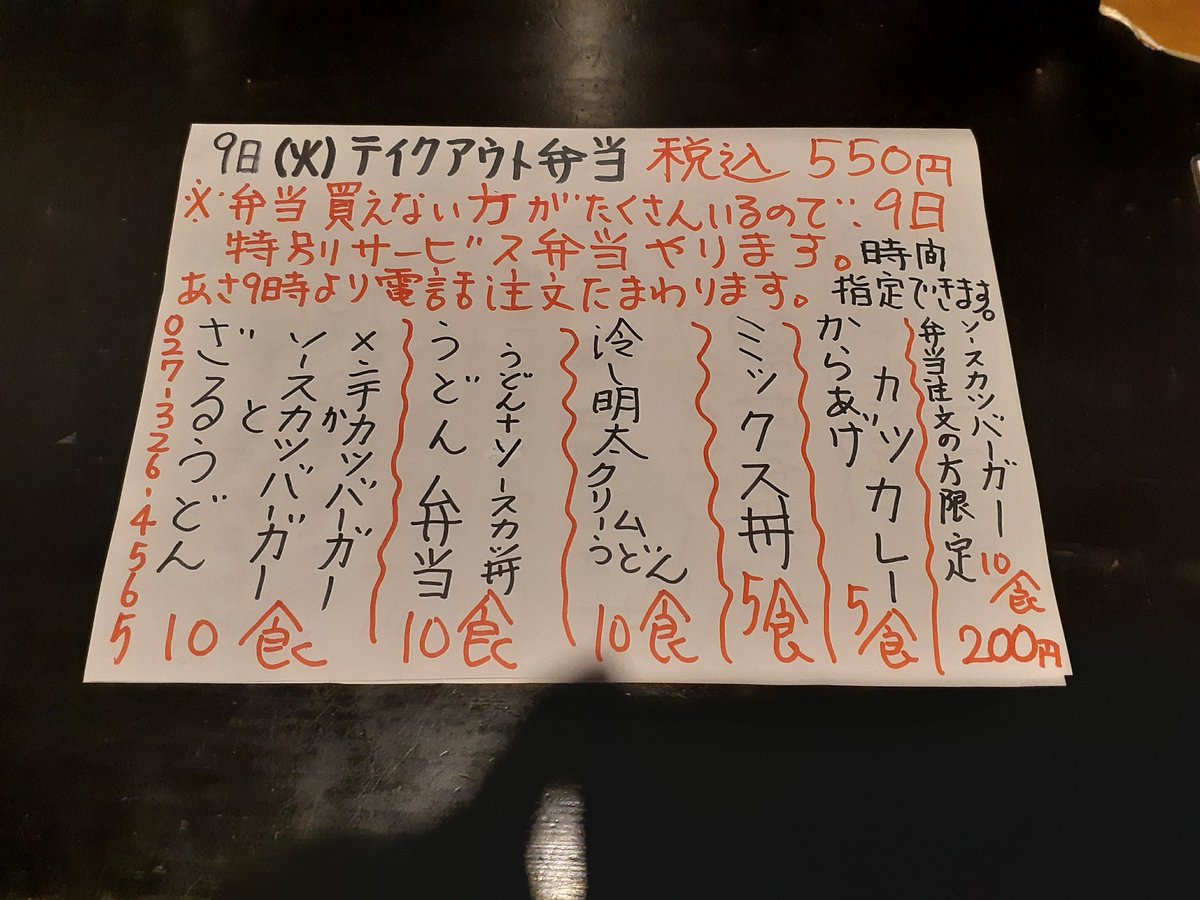 9日(火)テイクアウト弁当 税込 550円
※弁当買えない方がたくさんいるので、9日
特別サービス弁当やります。時間
あさ9時より電話注文たまわります。指定できます。
ソースカツバーガー
10食
弁当注文の方限定
200円
カツカレー
からあげ
5食
ミックス丼
5食
冷し明太クリーム
うどん
10食
うどん+ソースカツ丼
うどん弁当
10食
メンチカツバーガー
か
ソースカツバーガー
と
ざるうどん
10食
027-326-4565